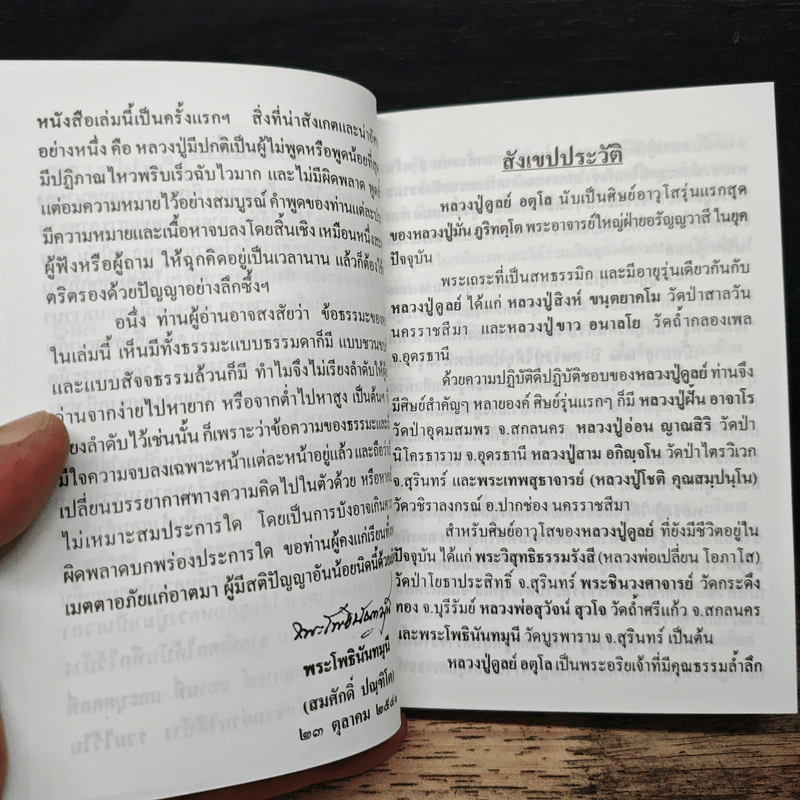 หนังสือเล่มนี้เป็นครั้งแรกฯ สิ่งที่น่าสังเกตและน่า
อย่างหนึ่ง คือ หลวงปู่มีปกติเป็นผู้ไม่พูดหรือพูดน้อยที่
มีปฏิภาณไหวพริบเร็วฉับไวมาก และไม่มีผิดพลาด
แต่อมความหมายไว้อย่างสมบูรณ์ คำพูดของท่านแต่ละ
มีความหมายและเนื้อหาจบลงโดยสิ้นเชิง เหมือนหนึ่ง
ผู้ฟังหรือผู้ถาม ให้ฉุกคิดอยู่เป็นเวลานาน แล้วก็ต้อง
ตริตรองด้วยปัญญาอย่างลึกซึ้งฯ
อนึ่ง ท่านผู้อ่านอาจสงสัยว่า ข้อธรรมะของ
ในเล่มนี้ เห็นมีทั้งธรรมะแบบธรรมดาก็มี แบบชวน
และแบบสัจจธรรมล้วนก็มี ทำไมจึงไม่เรียงลำดับให้
อ่านจากง่ายไปหายาก หรือจากต่ำไปหาสูง เป็นต้นฯ
ียงลำดับไว้เช่นนั้น ก็เพราะว่าข้อความของธรรมะและ
มีใจความจบลงเฉพาะหน้าแต่ละหน้าอยู่แล้ว และถือว่า
เปลี่ยนบรรยากาศทางความคิดไปในตัวด้วย หรือหาก
ไม่เหมาะสมประการใด โดยเป็นการบังอาจเกินควร
ผิดพลาดบกพร่องประการใด ขอท่านผู้คงแก่เรียน
เมตตาอภัยแก่อาตมา ผู้มีสติปัญญาอันน้อยนิดนี้ด้วย
พระโพธินันทมุนี
พระโพธินันทมุนี
(สมศักดิ์ ปณฺฑิโต)
๒๓ ตุลาคม
สังเขปประวัติ
หลวงปู่ดูลย์ อตุโล นับเป็นศิษย์อาวุโสรุ่นแรกสุด
ของหลวงปู่มั่น ภูริทตฺโต พระอาจารย์ใหญ่ฝ่ายอรัญญวาสี ในยุค
ปัจจุบัน
พระเถระที่เป็นสหธรรมิก และมีอายุรุ่นเดียวกันกับ
หลวงปู่ดูลย์ ได้แก่ หลวงปู่สิงห์ ขนฺตยาคโม วัดป่าสาลวัน
นครราชสีมา และหลวงปู่ขาว อนาลโย วัดถ้ำกลองเพล
จ.อุดรธานี
ด้วยความปฏิบัติดีปฏิบัติชอบของหลวงปู่ดูลย์ ท่านจึง
มีศิษย์สำคัญๆ หลายองค์ ศิษย์รุ่นแรกๆ ก็มี หลวงปู่ฝั้น อาจาโร
วัดป่าอุดมสมพร จ.สกลนคร หลวงปู่อ่อน ญาณสิริ วัดป่า
นิโครธาราม จ.อุดรธานี หลวงปู่สาม อกิญฺจโน วัดป่าไตรวิเวก
จ.สุรินทร์ และพระเทพสุธาจารย์ (หลวงปู่โชติ คุณสมฺปนฺโน)
วัดวชิราลงกรณ์ อ.ปากช่อง นครราชสีมา
สำหรับศิษย์อาวุโสของหลวงปู่ดูลย์ ที่ยังมีชีวิตอยู่ใน
ปัจจุบัน ได้แก่ พระวิสุทธิธรรมรังสี (หลวงพ่อเปลี่ยน โอภาโส)
วัดป่าโยธาประสิทธิ์ จ.สุรินทร์ พระชินวงศาจารย์ วัดกระดึง
ทอง จ.บุรีรัมย์ หลวงพ่อสุวัจน์ สุวโจ วัดถ้ำศรีแก้ว จ.สกลนคร
และพระโพธินันทมุนี วัดบูรพาราม จ.สุรินทร์ เป็นต้น
หลวงปู่ดูลย์ อตุโล เป็นพระอริยเจ้าที่มีคุณธรรมล้ำลึก